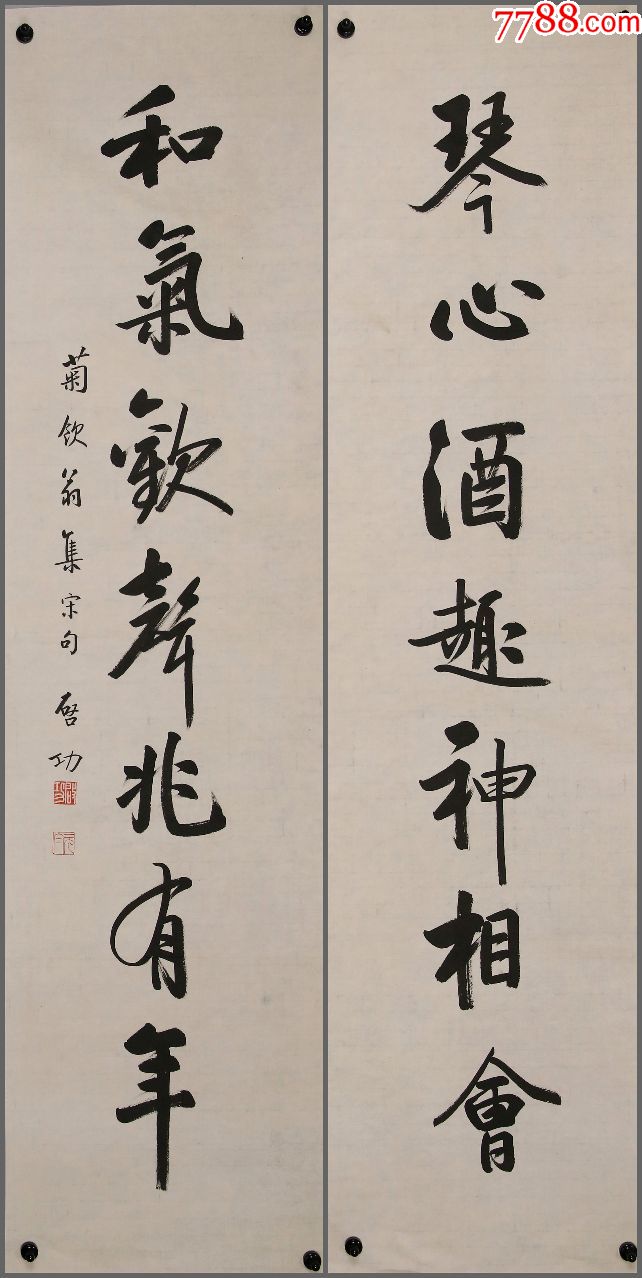 7788.com
琴心酒趣神相會
和氣歡聲兆有年
菊飲翁集宋句 啓功